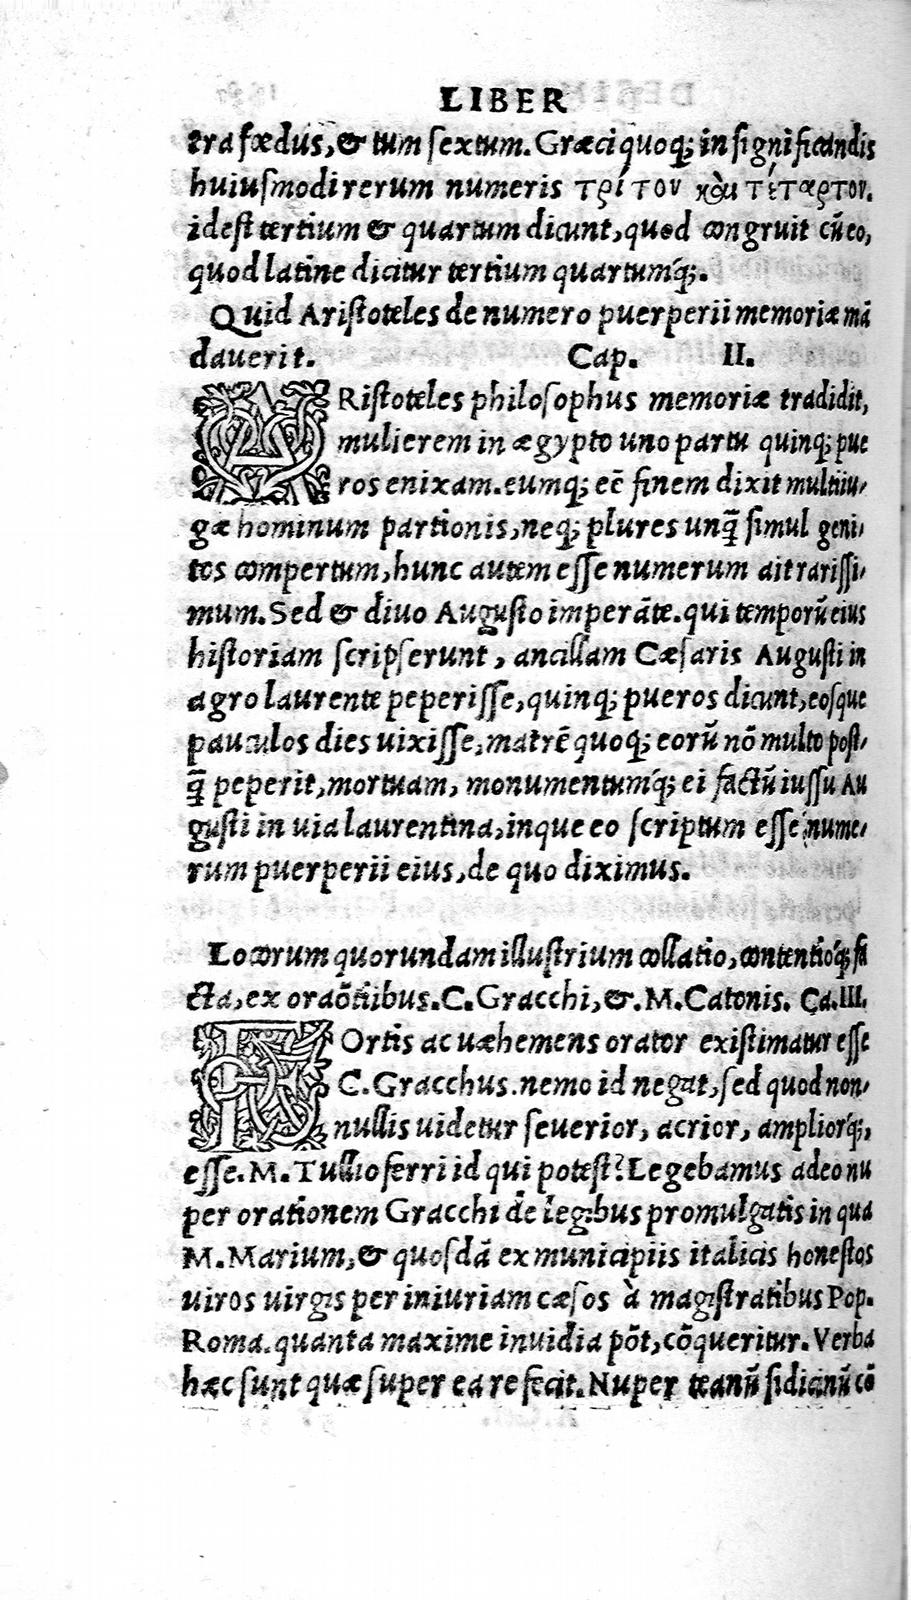 LIBER
tra fœdus, & tum sextum. Græci quoq; in significandis
huiusmodi rerum numeris τρίτον καὶ τέταρτον.
idest tertium & quartum dicunt, quod congruit cũ eo,
quod latine dicitur tertium quartumq́;.
Quid Aristoteles de numero puerperii memoriæ mã
dauerit. Cap. II.
ARistoteles philosophus memoriæ tradidit,
mulierem in ægypto uno partu quinq; pue
ros enixam. eumq; eẽ finem dixit multiiu-
gæ hominum partionis, neq; plures unq̃ simul geni-
tos compertum, hunc autem esse numerum ait rarissi-
mum. Sed & diuo Augusto imperãte. qui temporũ eius
historiam scripserunt, ancillam Cæsaris Augusti in
agro laurente peperisse, quinq; pueros dicunt, eosque
pauculos dies uixisse, matrẽ quoq; eorũ nõ multo post-
q̃ peperit, mortuam, monumentumq́; ei factũ iussu Au
gusti in uia laurentina, inque eo scriptum esse nume-
rum puerperii eius, de quo diximus.
Locorum quorundam illustrium collatio, contentioq́; fa
cta, ex oraõtiibus. C. Gracchi, &. M. Catonis. Ca. III.
FOrtis ac uæhemens orator existimatur esse
C. Gracchus. nemo id negat, sed quod non-
nullis uidetur seuerior, acrior, ampliorq́;,
esse. M. Tullio ferri id qui potest? Legebamus adeo nu
per orationem Gracchi de legibus promulgatis in qua
M. Marium, & quosdã ex municipiis italicis honestos
uiros uirgis per iniuriam cæsos à magistratibus Pop.
Roma. quanta maxime inuidia põt, cõqueritur. Verba
hæc sunt quæ super ea re fecit. Nuper teanũ sidicinũ cõ